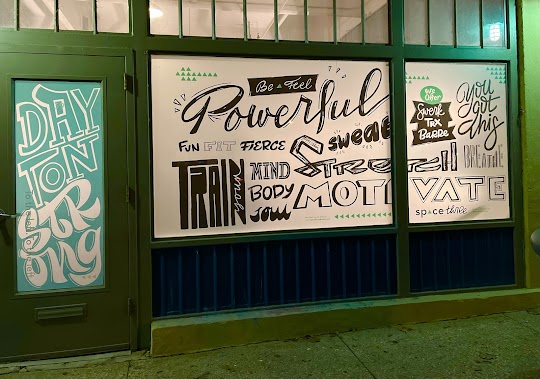 DAY
TON
STR
ONG
Be Feel
Powerful
FUN FIT FIERCE
sweat
TRAIN
your
MIND
BODY
Soul
STRETCH
MOTIVATE
We Offer
Swerk
TRX
BARRE
You
Got
this
BREATHE
space three